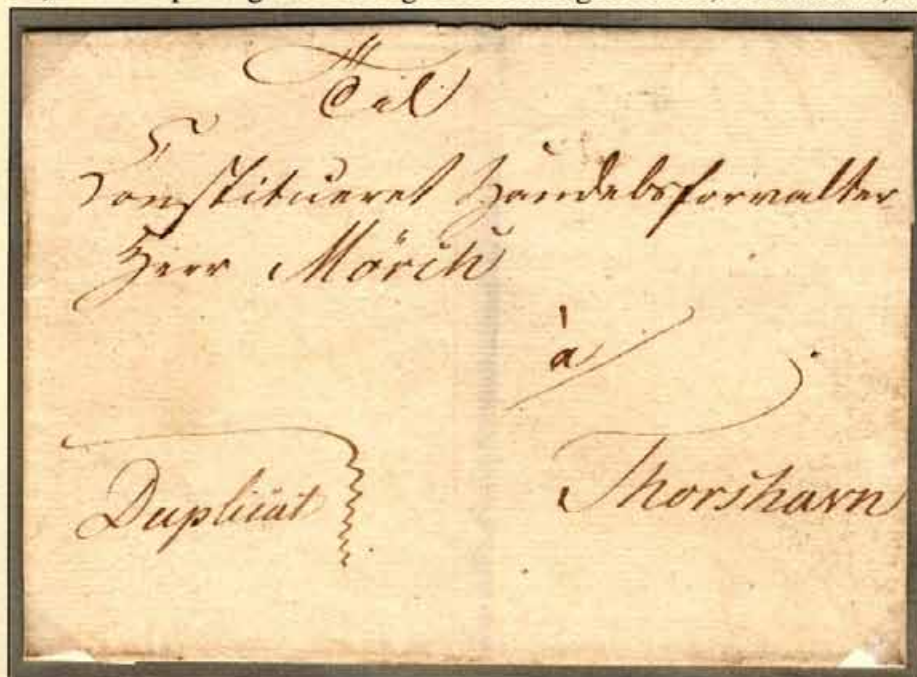 Til
Constitueret Handelsforvalter
Herr Mörch
à
Thorshavn
Duplicat